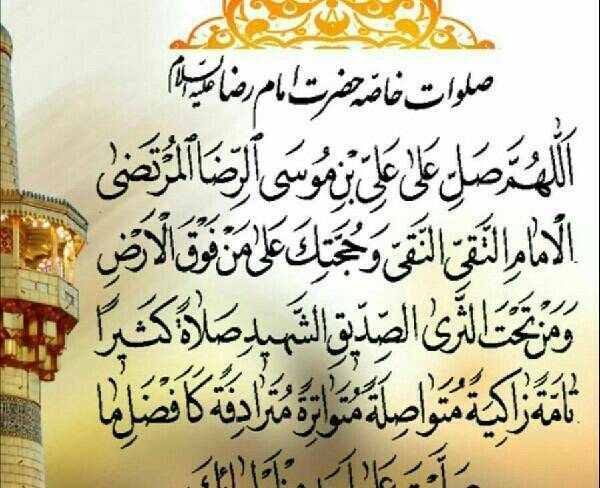 صلوات خاصّه حضرت امام رضا علیه السلام
اَللّهُمَّ صَلِّ عَلىٰ عَلِىِّ بْنِ مُوسَى ٱلرِّضَا ٱلمُرْتَضىٰ
الْاِمامِ التَّقِىِّ النَّقِىِّ وَحُجَّتِكَ عَلىٰ مَنْ فَوْقَ الْاَرْضِ
وَمَنْ تَحْتَ الثَّرىٰ الصِّدّيقِ الشَّهيدِ صَلاةً كَثيرًا
تامَّةً زاكِيَةً مُتَواصِلَةً مُتَواتِرَةً مُتَرادِفَةً كَاَفْضَلِ ما